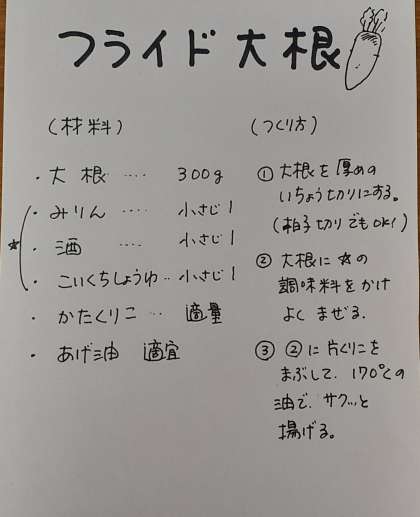 フライド大根
(材料)
・大根 ‥‥ 300g
・みりん ‥‥ 小さじ1
☆ ・酒 ‥‥ 小さじ1
・こいくちしょうゆ ‥ 小さじ1
・かたくりこ ‥ 適量
・あげ油 適宜
(つくり方)
① 大根を厚めの
いちょう切りにする。
(拍子切りでもOK!)
② 大根に☆の
調味料をかけ
よくまぜる.
③ ②に片くりこを
まぶして. 170℃の
油で. サクッと
揚げる。